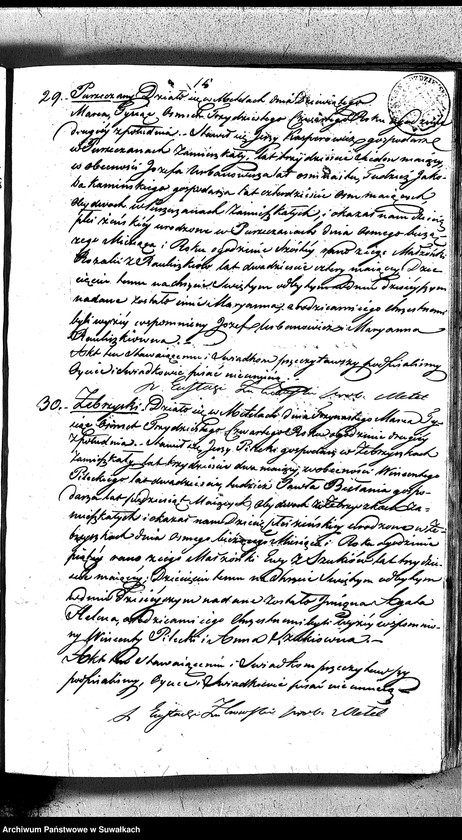 15
29. Purzeczany. Działo się w Metelach dnia Dziewiątego
Marca, Tysiąc Osmset Trzydziestego Czwartego Roku o godzinie
drugiej z południa. Stawił się Jerzy Kasperowicz gospodarz
w Purzeczanach Zamieszkały, lat trzydzieście siedem mający
w obecności Józefa Urbanowicza lat ośmnaście, Tudzież Jaku-
ba Kaminskiego gospodarza lat czterdzieście osm mających
obydwóch w Purzeczanach Zamieszkałych, i okazał nam dziecię
płci żeńskiéj urodzone w Purzeczanach dnia Osmego bieżą-
cego Miesiąca i Roku o godzinie szóstej rano z jego Małżonki
Rozalii z lat dwadzieście cztery mającej. Dzie-
cięciu temu na Chrzcie Świętym odbytym w dniu dzisiejszym
nadane zostało imie Maryanna, a rodzicami jego Chrzestnemi
byli wyżej wspomniony Józef Urbanowicz i Maryanna

Akt ten Stawaiącemu i Świadkom przeczytawszy podpisaliśmy
Oycie i Świadkowie pisać nieumieią.
Metel
30. Zebrzyski. Działo się w Metelach dnia Trzynastego Marca Ty-
siąc Ośmset Trzydziestego Czwartego Roku o godzinie drugiej
z południa. Stawił się Jerzy Pilecki gospodarz w Zebrzyskach
Zamieszkały lat trzydzieście dwa mający, w obecności Wincentego
Pileckiego lat dwadzieścia, tudzież Pawła gospo-
darza lat pięćdziesiąt Mających, obydwóch w Zebrzyskach Za-
mieszkałych i okazał nam Dziecię płci żeńskiej urodzone w Ze-
brzyskach dnia Osmego bieżącego Miesiąca i Roku o godzinie
piątej rano z jego Małżonki Ewy z lat trzydzie-
ście mającej. Dziecięciu temu na Chrzcie Świętym odbytym
w dniu Dzisiejszym nadane zostało Imiona Agata
Helena, a rodzicami jego Chrzestnemi byli wyżej wspomnio-
ny Wincenty Pilecki i Anna
Akt ten Stawaiącemu i Świadkom przeczytawszy
podpisaliśmy, Oycie i Świadkowie pisać nie umieią
Metel
Archiwum Państwowe w Suwałkach